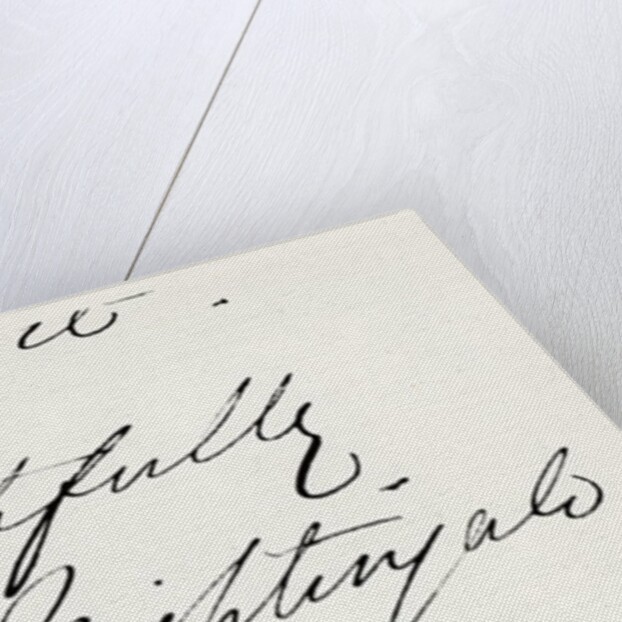 tfully
Nightingale